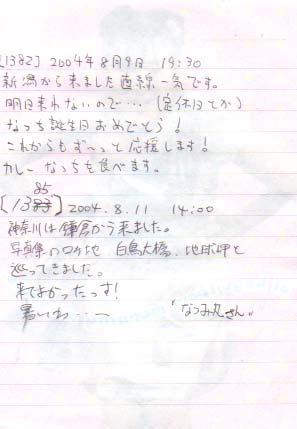 [1382] 2004年8月9日 19:30
新潟から来ました直線一気です。
明日来れないので…(定休日とか)
なっち誕生日おめでとう!
これからもず〜っと応援します!
カレーなっちを食べます。
85
[1383] 2004.8.11 14:00
神奈川は鎌倉から来ました。
写真集のロケ地 白鳥大橋、地球岬と
巡ってきました。
来てよかったっす!
暑いわ・・・
"なつみ丸さん"